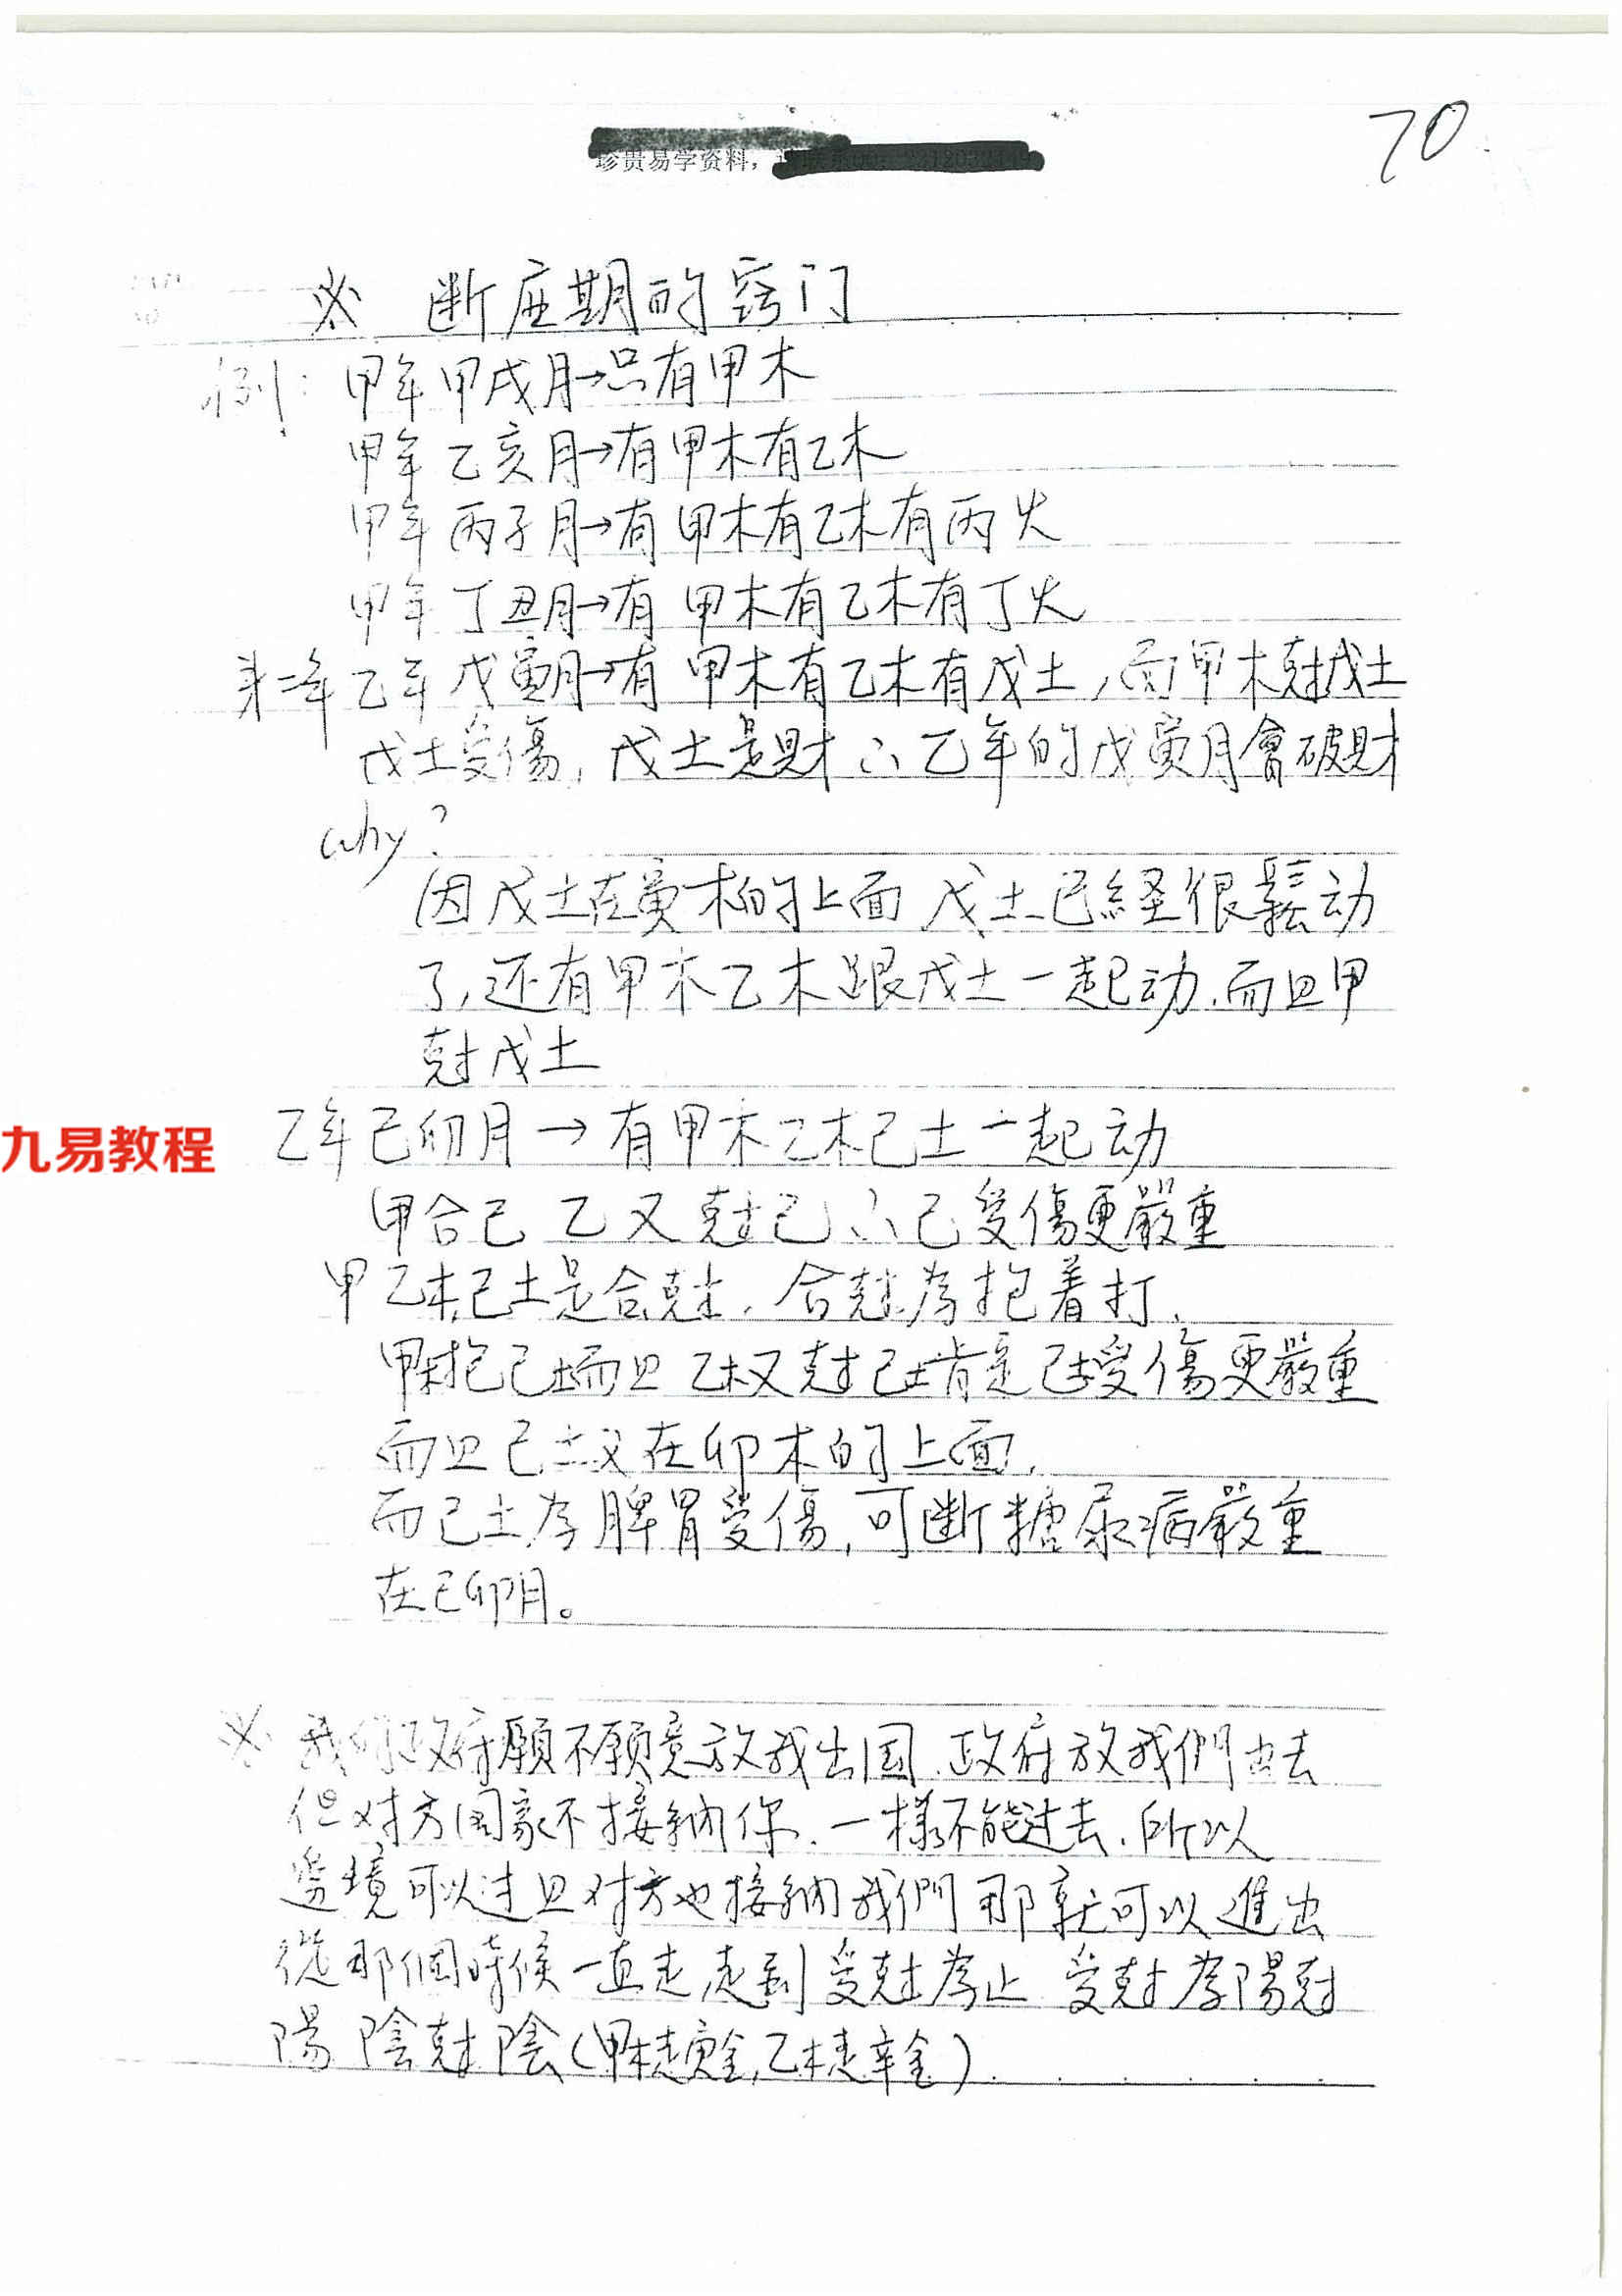 70
珍贵易学资料，
※ 断应期的窍门
例: 甲年甲戌月→只有甲木
甲年乙亥月→有甲木有乙木
甲年丙子月→有甲木有乙木有丙火
甲年丁丑月→有甲木有乙木有丁火
第二年乙年戊寅月→有甲木有乙木有戊土,而甲木尅戊土
戊土受傷,戊土是財∴乙年的戊寅月會破財
why?
因戊土在寅木的上面 戊土已経很鬆动
了,还有甲木乙木跟戊土一起动.而且甲
尅戊土
九易教程
乙年己卯月→有甲木乙木己土一起动
甲合己 乙又尅己∴己受傷更嚴重
甲乙木己土是合尅.合尅為抱着打.
甲木抱己土而且乙木又尅己土肯定己土受傷更嚴重
而且己土又在卯木的上面.
而己土為脾胃受傷,可断糖尿病嚴重
在己卯月。
※ 我们政府願不願意放我出国.政府放我們出去
但对方国家不接納你.一樣不能过去.所以
邊境可以过且对方也接納我們那就可以進出
從那個時候一直走,走到受尅為止 受尅為陽尅
陽 陰尅陰(甲木走庚金,乙木走辛金)